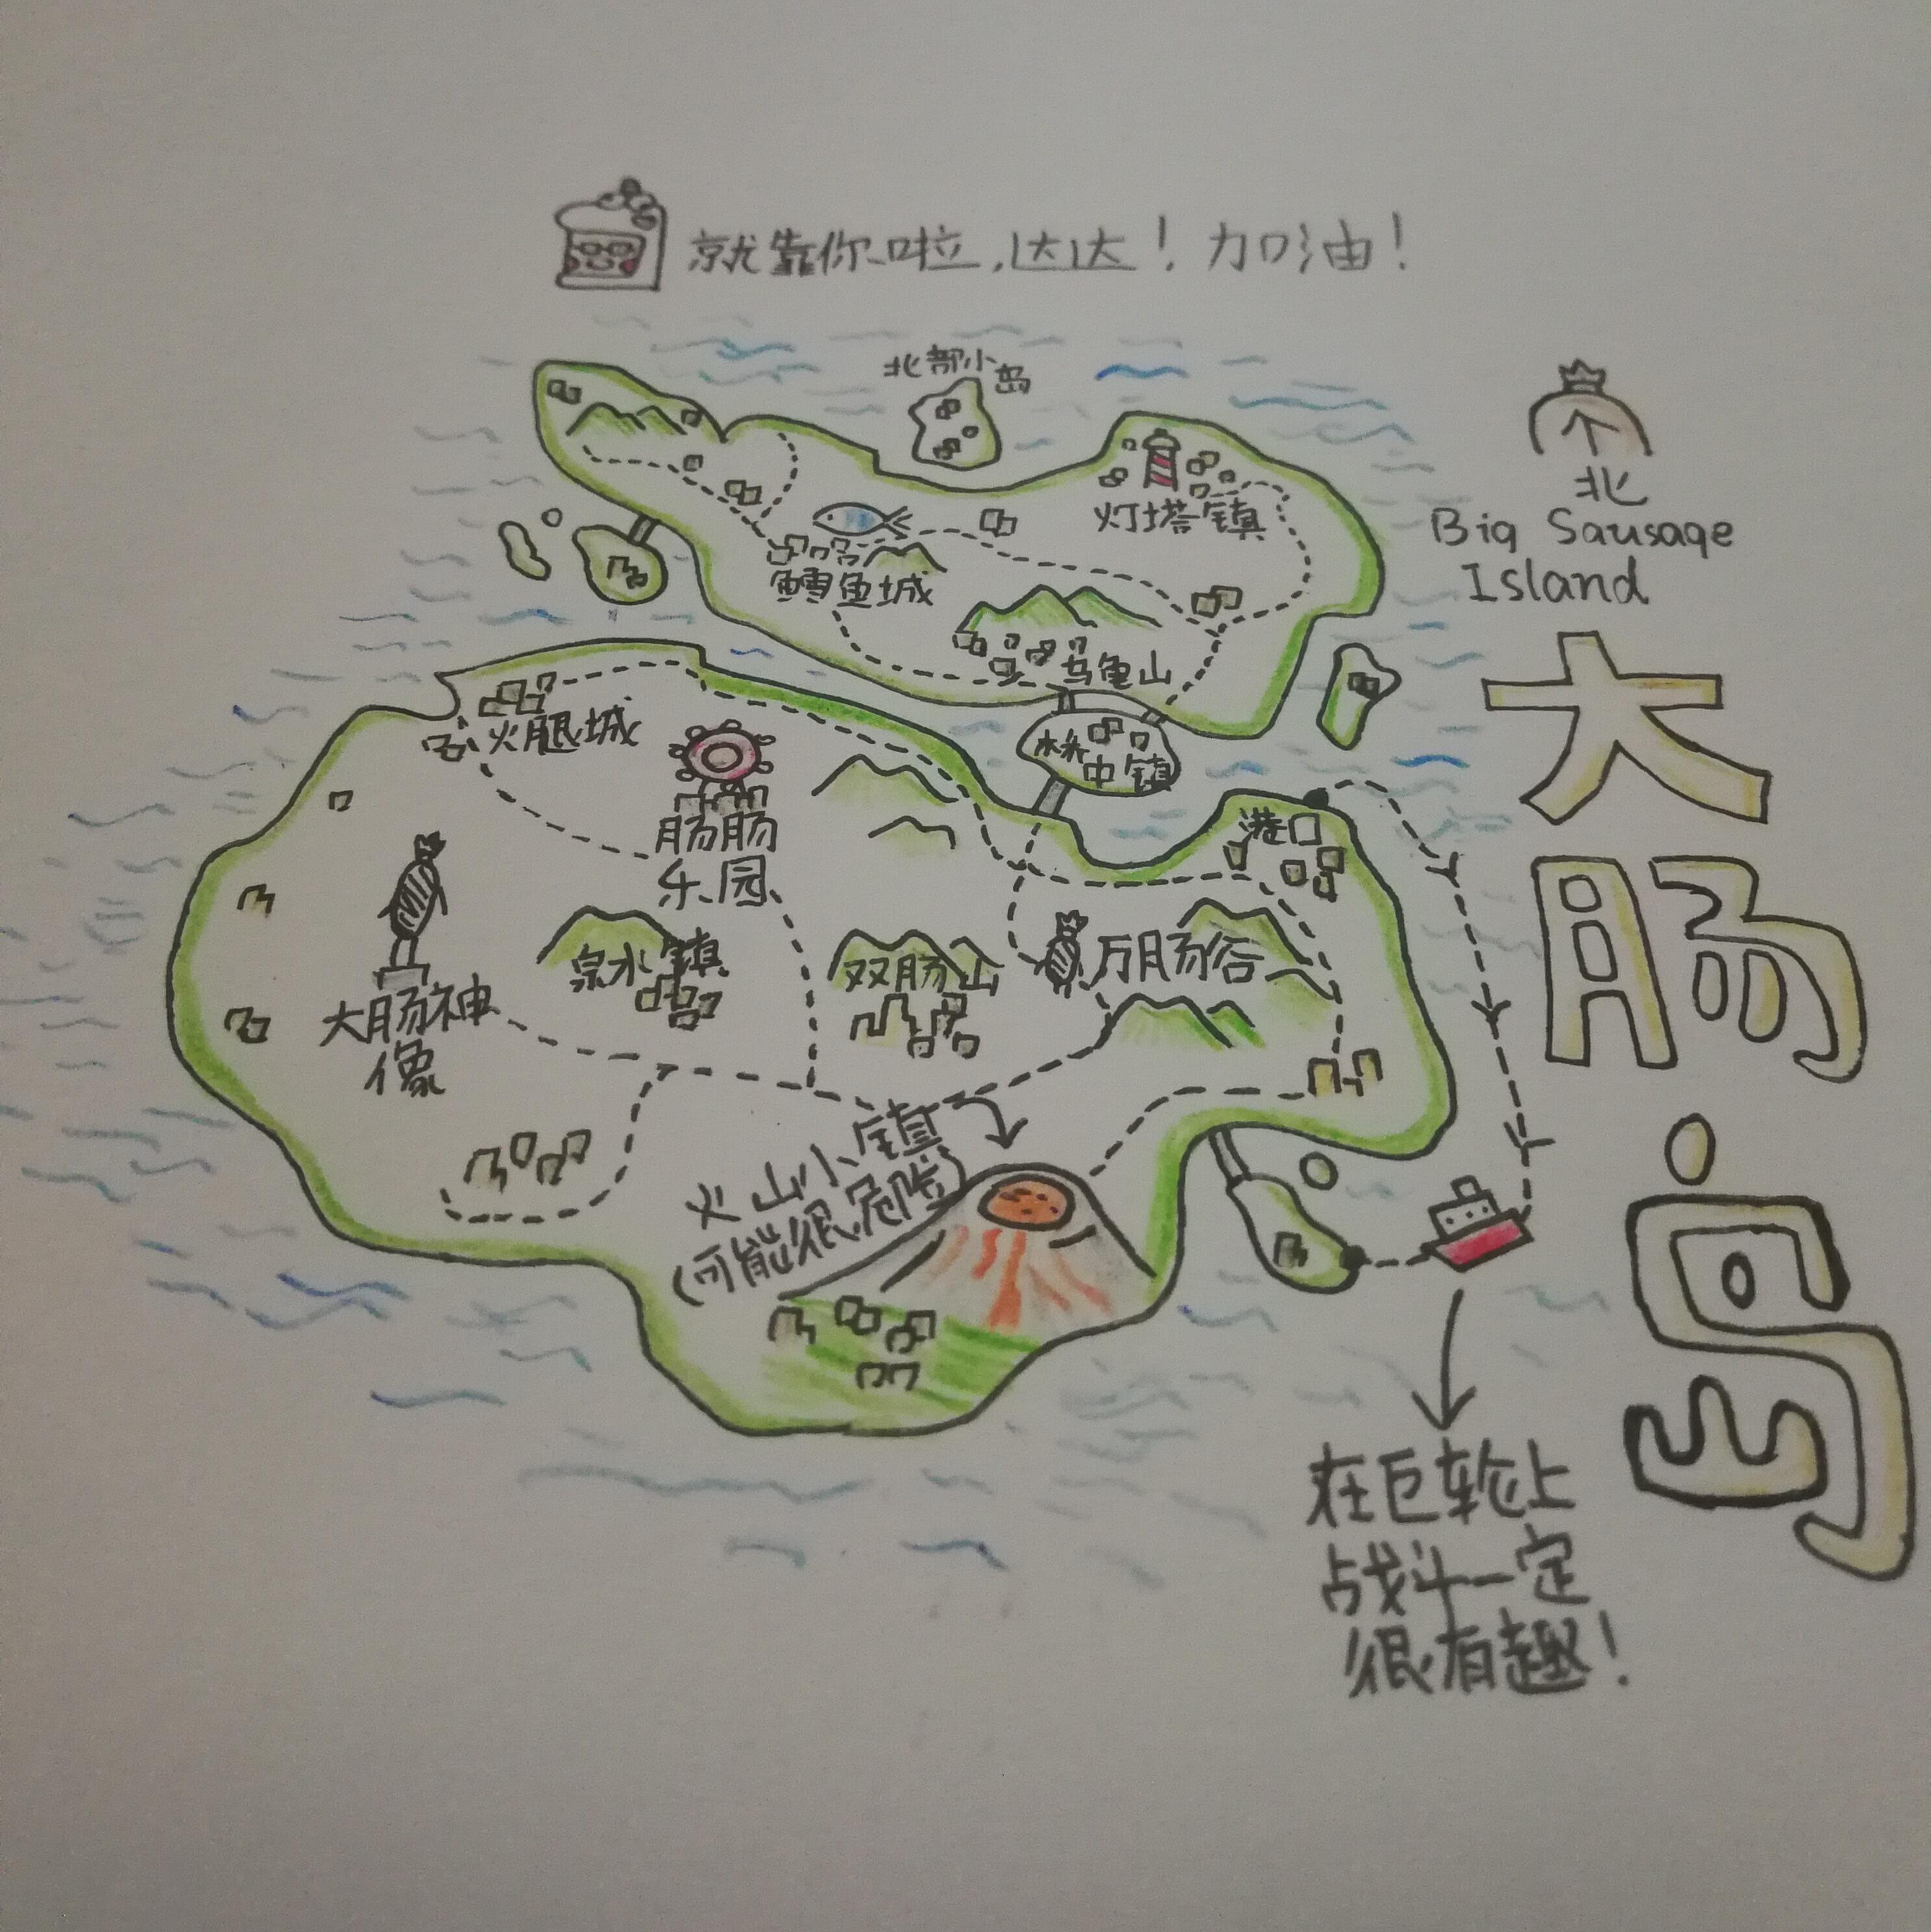 就靠你啦,达达!加油!
北部小岛
北
Big Sausage
Island
大
肠
岛
灯塔镇
鳕鱼城
乌龟山
桥
中镇
火腿城
肠肠
乐园
港口
大肠神
像
泉水镇
双肠山
万肠谷
火山小镇
(可能很危险)
在巨轮上
战斗一定
很有趣!